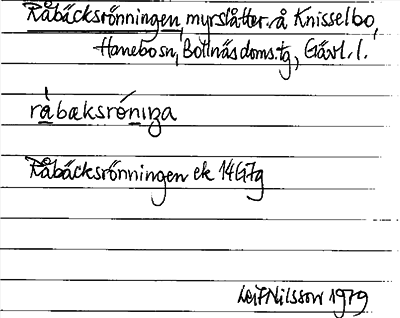 Råbäcksrönningen, myrslåtter. å Knisselbo,
Hanebo sn, Bollnäs doms.tg, Gävl. l.
råbæksrǿnıŋa
Råbäcksrönningen ek 14G7g
Leif Nilsson 1979